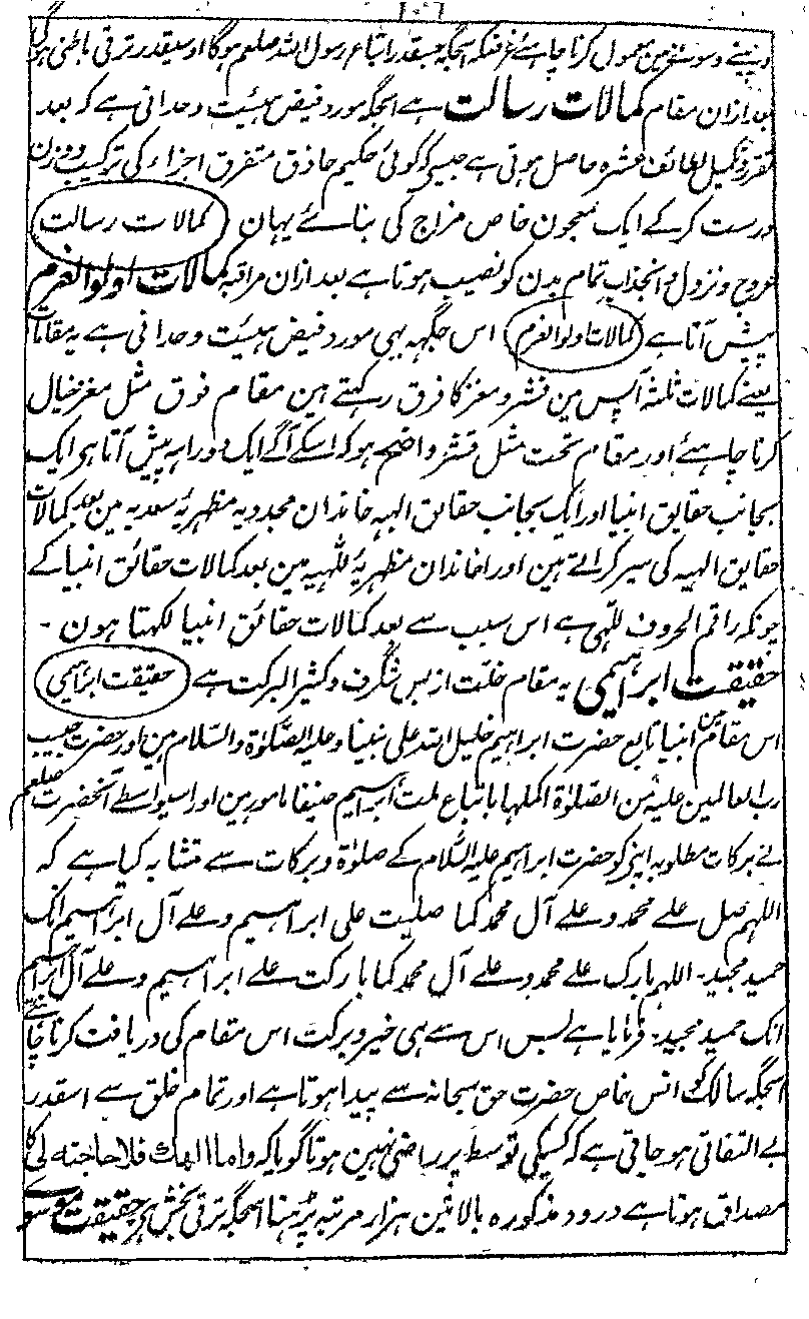 ۱۰۶
و پینے و سونے مین معمول کرنا چاہئے غرضکہ اسجگہ جسقدر اتباع رسول اللہ صلعم ہوگا اوسیقدر ترقی باطنی ہوگی
بعد ازان مقام کمالات رسالت ہے اسجگہ مورد فیض ہیئیت وحدانی ہے کہ بعد
تقرر و تکمیل لطائف عشرہ حاصل ہوتی ہے جیسے کہ کوئی حکیم حاذق متفرق اجزاء کی ترکیب و وزن
درست کر کے ایک معجون خاص مزاج کی بنائے یہان کمالات رسالت
عروج و نزول و انجذاب تمام بدن کو نصیب ہوتا ہے بعد ازان مراقبہ کمالات اولوالعزم
پیش آتا ہے کمالات اولوالعزم اس جگہہ بہی مورد فیض ہیئیت وحدانی ہے یہ مقامات
یعنے کمالات ثلثہ آپس مین قشر و مغز کا فرق رکہتے ہین مقام فوق مثل مغز خیال
کرنا چاہئے اور مقام تحت مثل قشر واضح ہو کہ اسکے آگے ایک دوراہہ پیش آتا ہی ایک
بجانب حقایق انبیا اور ایک بجانب حقایق الہیہ خاندان مجددیہ مظہریہ سعدیہ مین بعد کمالات
حقایق الہیہ کی سیر کراتے ہین اور خاندان مظہریہ للٰہیہ مین بعد کمالات حقائق انبیا کے
چونکہ راقم الحروف للّٰہی ہے اس سبب سے بعد کمالات حقائق انبیا لکہتا ہون -
حقیقت ابراہیمی یہ مقام خلت از بس شگرف و کثیر البرکت ہے حقیقت ابراہیمی
اس مقام مین انبیا تابع حضرت ابراہیم خلیل اللہ علی نبینا و علیہ الصلوٰۃ والسلام ہین اور حضرت حبیب
رب العالمین علیہ من الصلوٰۃ اکملہا باتباع ملت ابراہیم حنیفا مامور ہین اور اسیواسطے آنحضرت صلعم
نے برکات مطلوبہ اپنے کو حضرت ابراہیم علیہ السلام کے صلوٰۃ و برکات سے متشابہ کیا ہے کہ
اللہم صل علے محمد و علے آل محمد کما صلیت علی ابراہیم و علے آل ابراہیم انک
حمید مجید۔ اللہم بارک علے محمد و علے آل محمد کما بارکت علے ابراہیم و علے آل ابراہیم
انک حمید مجید۔ فرمایا ہے پس اس سے ہی خیر و برکت اس مقام کی دریافت کرنا چاہئے
اسجگہ سالک کو انس خاص حضرت حق سبحانہ سے پیدا ہوتا ہے اور تمام خلق سے اسقدر
بے التفاتی ہو جاتی ہے کہ کسیکی توسط پر راضی نہین ہوتا گویا کہ واما الیک فلا حاجتہ لی کا
مصداق ہوتا ہے درود مذکورہ بالا تین ہزار مرتبہ پڑہنا اسجگہ ترقی بخش ہی حقیقت موسوی